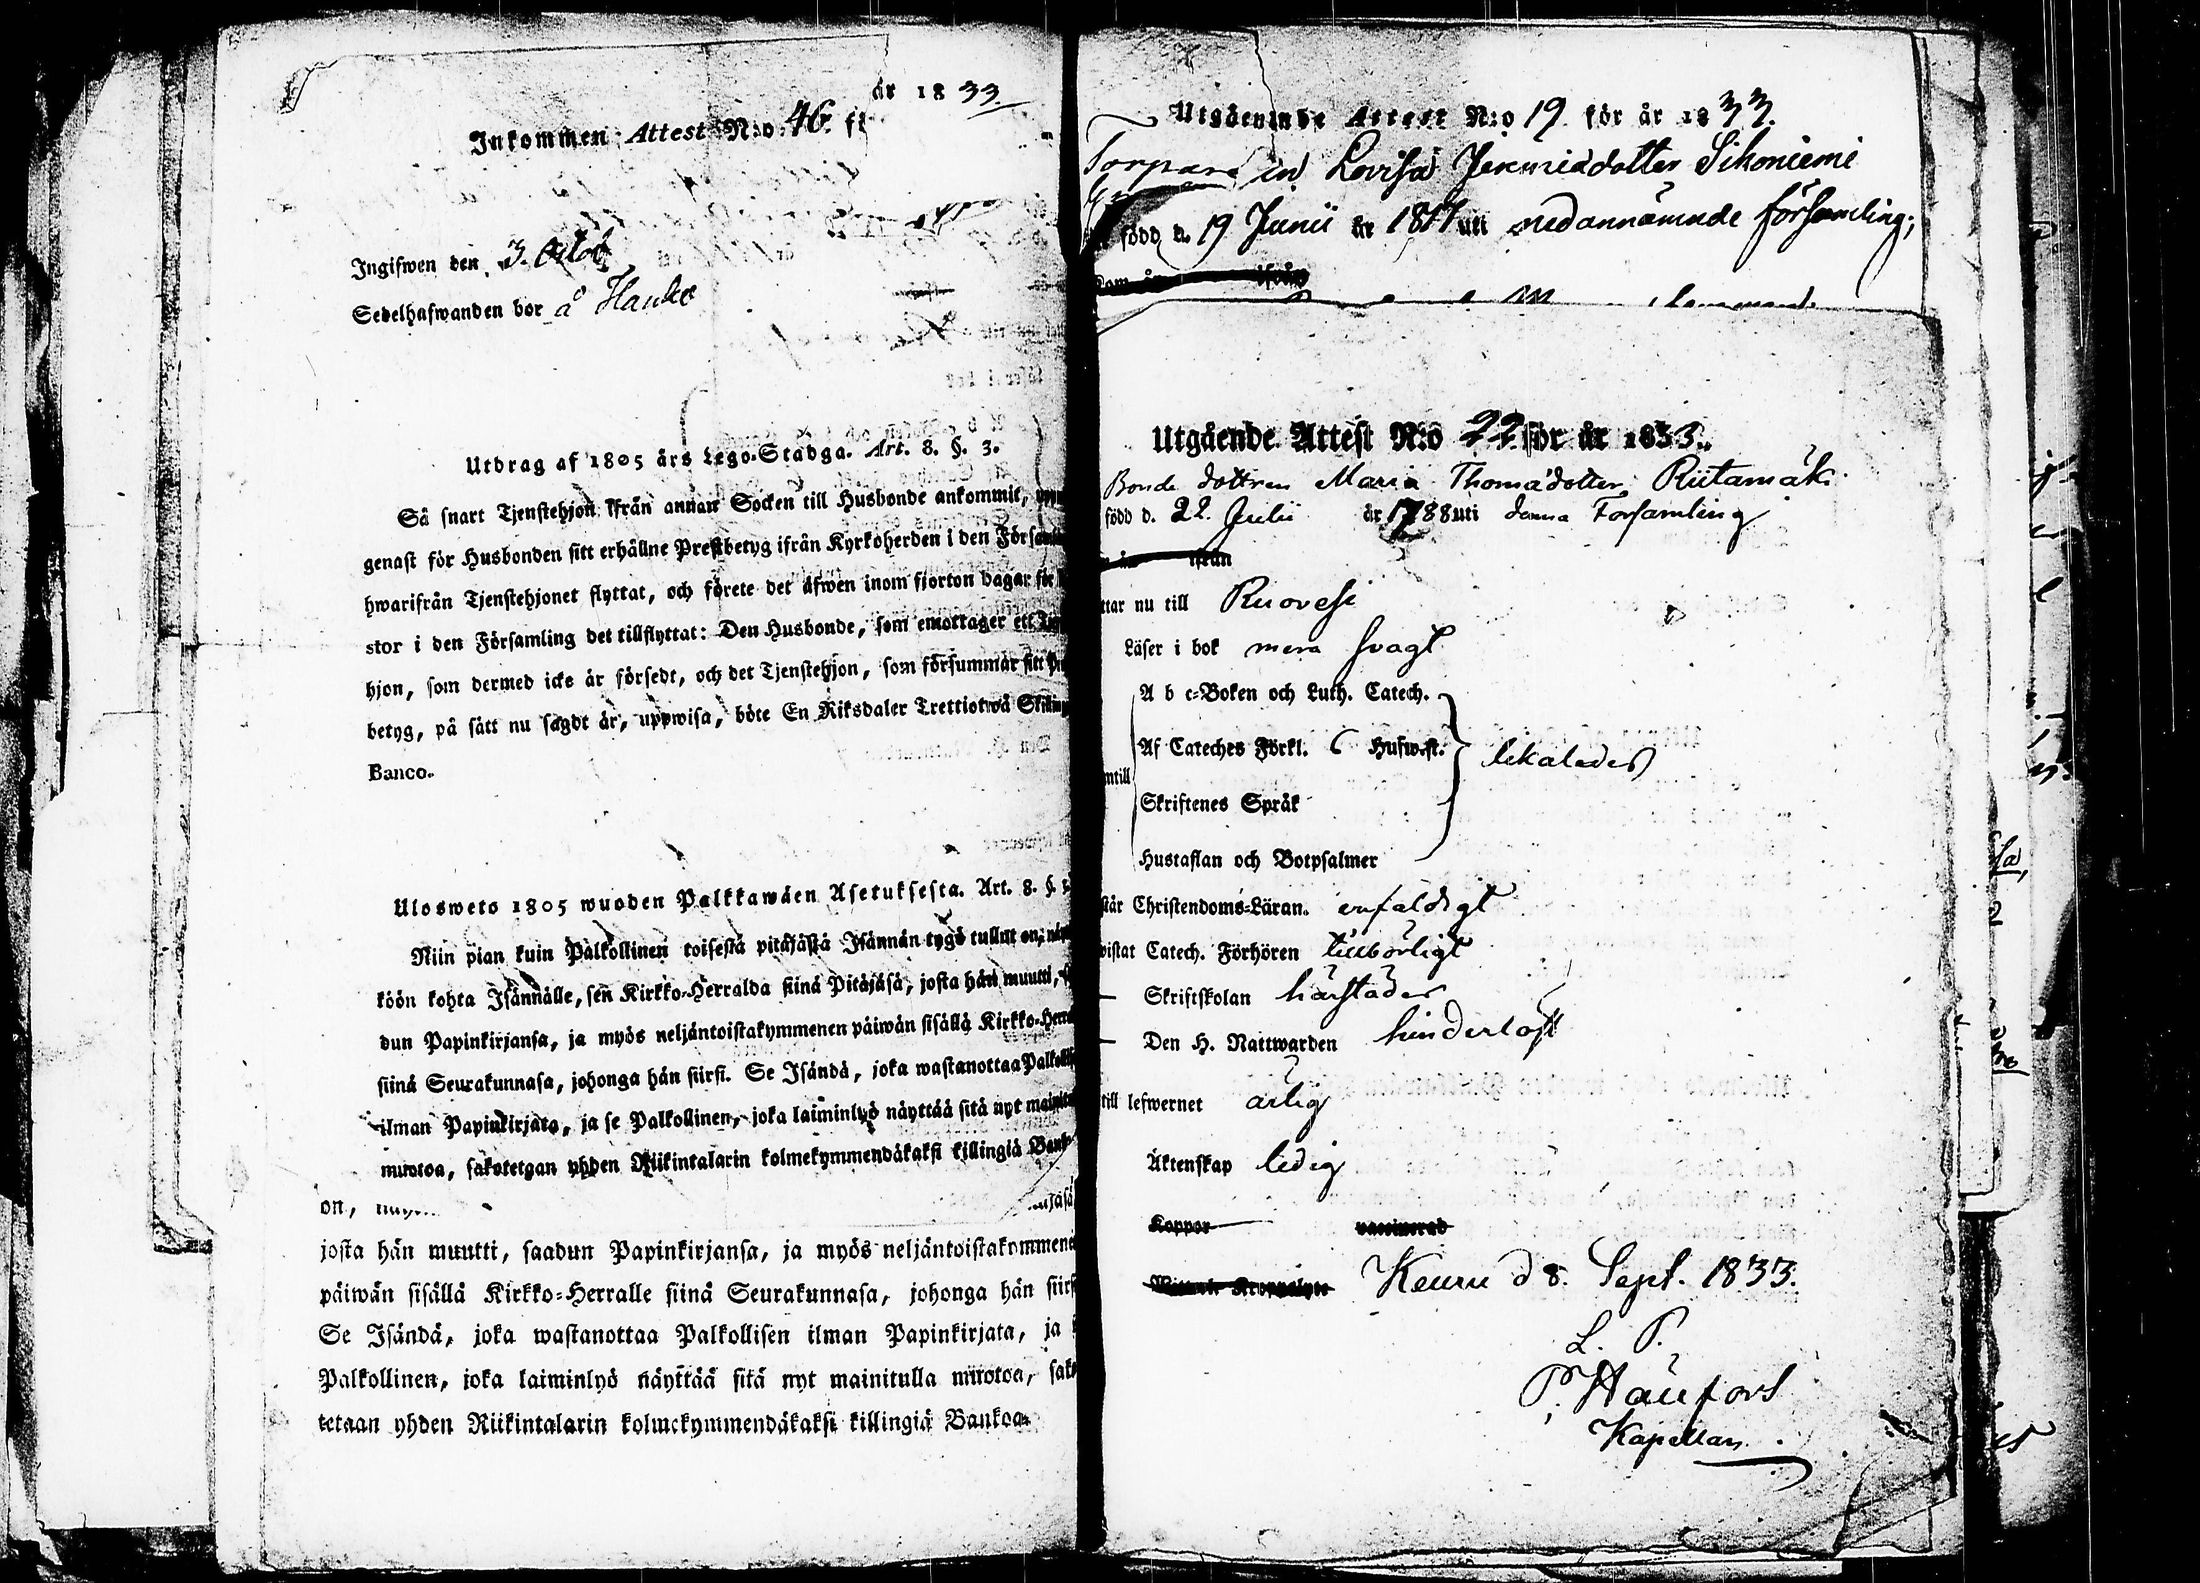 år 1833
Inkommen Attest N:o 46. f
Ingifwen den 3. Octob
Sedelhafwanden bor å Hauko
Utdrag af 1805 års Lego-Stadga. Art. 8. §. 3.
Så snart Tjenstehjon ifrån annan Socken till Husbonde ankommit,
genast för Husbonden sitt erhållne Prestbetyg ifrån Kyrkoherden i den
hwarifrån Tjenstehjonet flyttat, och förete det äfwen inom fjorton dagar för
stor i den Församling det tillflyttat: Den Husbonde, som emottager ett
hjon, som dermed icke är försedt, och det Tjenstehjon, som försummar sitt
betyg, på sätt nu sagdt är, uppwisa, böte En Riksdaler Trettiotwå
Banco.
Ulosweto 1805 wuoden Palkkawäen Asetuksesta. Art. 8. §. 3.
Niin pian kuin Palkollinen toisesta pitäjästä Isännän tygö tullut on,
köön kohta Isännälle, sen Kirkko-Herralda siinä Pitäjäsä, josta hän muutti,
dun Papinkirjansa, ja myös neljäntoistakymmenen päiwän sisällä Kirkko-
siinä Seurakunnasa, johonga hän siirsi. Se Isändä, joka wastanottaa
ilman Papinkirjata, ja se Palkollinen, joka laiminlyö näyttää sitä nyt
muotoa, sakotetaan yhden Riikintalarin kolmekymmendäkaksi killingiä
on,
josta hän muutti, saadun Papinkirjansa, ja myös neljäntoistakymmene
päiwän sisällä Kirkko-Herralle siinä Seurakunnasa, johonga hän siirs
Se Isändä, joka wastanottaa Palkollisen ilman Papinkirjata, ja
Palkollinen, joka laiminlyö näyttää sitä nyt mainitulla muotoa, sako
tetaan yhden Riikintalarin kolmekymmendäkaksi killingiä Bankoa.
Utgående Attest N:o 19 för år 1833.
Lovisa Jeremiædotter Sikoniemi
född d. 19 Junii år uti nedannämnde församling;
ifrån
Utgående Attest N:o 22 för år 1833.
Bonde dottren Maria Thomædotter Riitamäki
född d. 22. Julii år 1788 uti denna Församling
ifrån
ttar nu till Ruovesi
Läser i bok mera svagt
A b c-Boken och Luth. Catech.
Af Cateches Förkl. Husw.st.
ntill
likaledes
Skriftenes Språk
Hustaflan och Botpsalmer
står Christendoms-Läran. enfaldigt
wistat Catech. Förhören tillbörligt
— Skriftskolan härstädes
— Den H. Nattwarden hinderlöst
till lefwernet ärlig
Äktenskap ledig
Koppor vaccinerad
Keuru d 8. Sept. 1833.
L. P.
Kapellan.